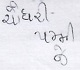 ચૌધરી-
પમ્મી
જે